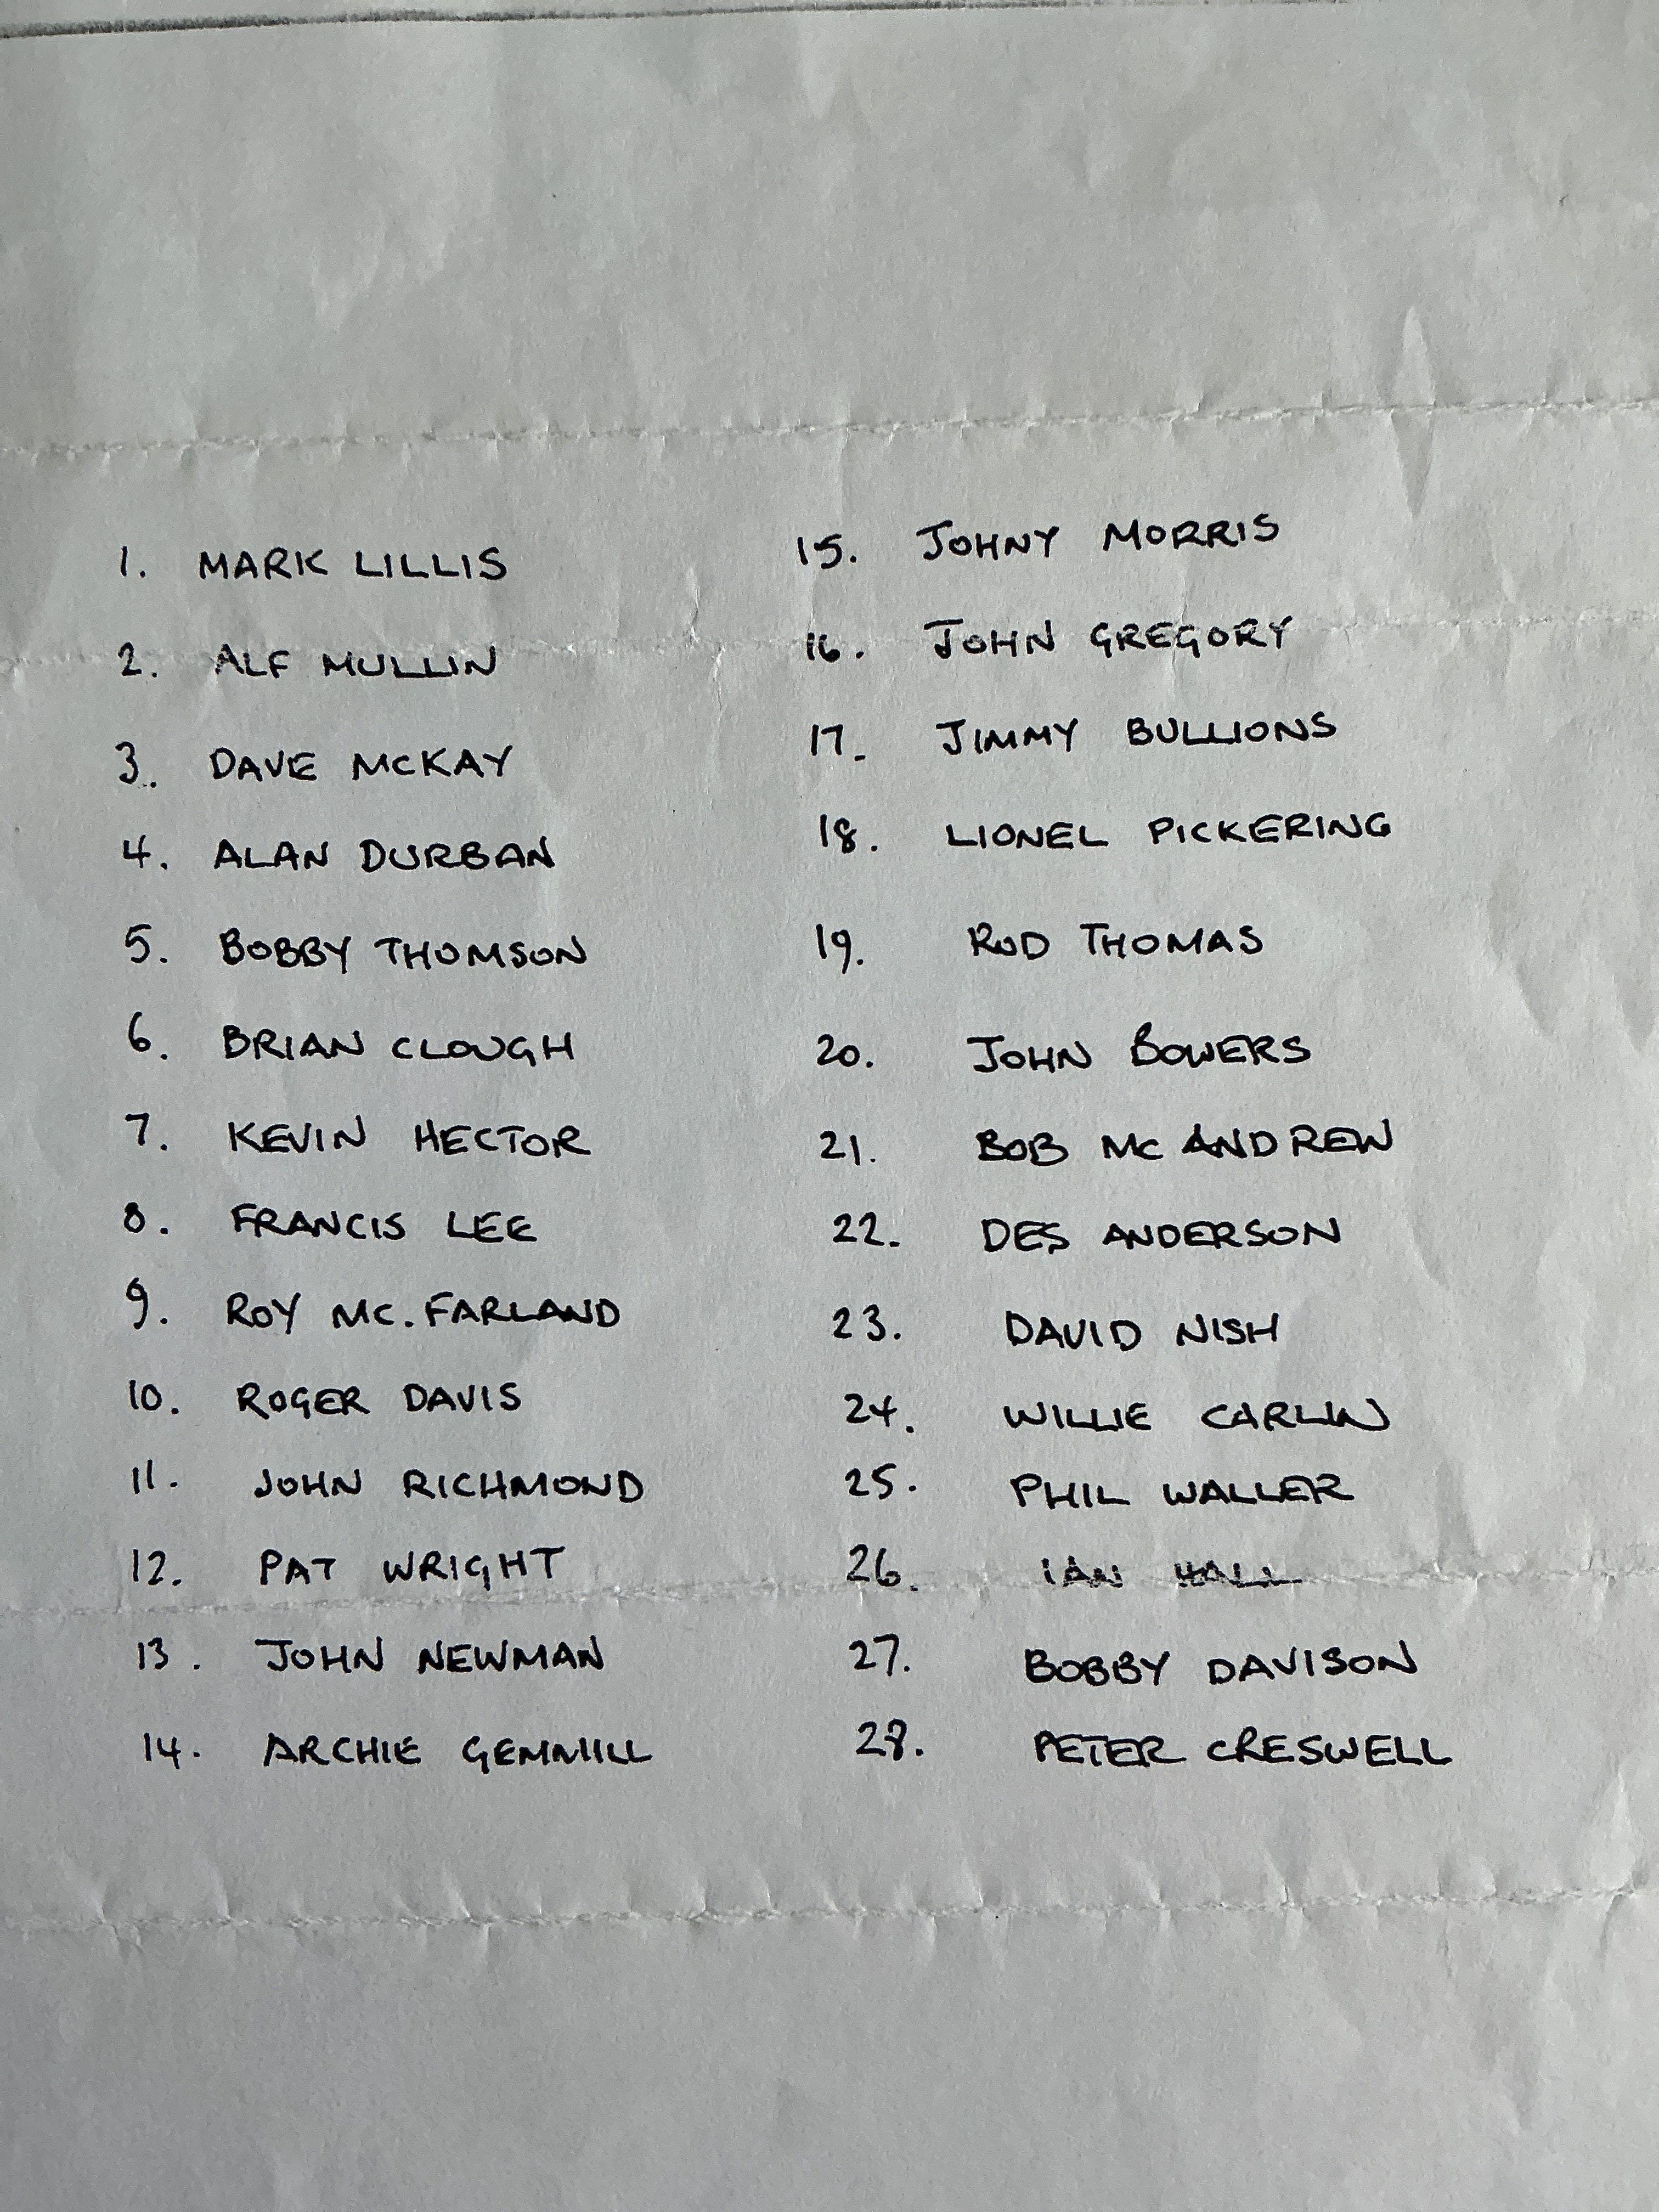 1. MARK LILLIS
2. ALF MULLIN
3. DAVE MCKAY
4. ALAN DURBAN
5. BOBBY THOMSON
6. BRIAN CLOUGH
7. KEVIN HECTOR
8. FRANCIS LEE
9. ROY MC.FARLAND
10. ROGER DAVIS
11. JOHN RICHMOND
12. PAT WRIGHT
13. JOHN NEWMAN
14. ARCHIE GEMMILL
15. JOHNY MORRIS
16. JOHN GREGORY
17. JIMMY BULLIONS
18. LIONEL PICKERING
19. ROD THOMAS
20. JOHN BOWERS
21. BOB MC ANDREW
22. DES ANDERSON
23. DAVID NISH
24. WILLIE CARLIN
25. PHIL WALLER
26. IAN HALL
27. BOBBY DAVISON
28. PETER CRESWELL